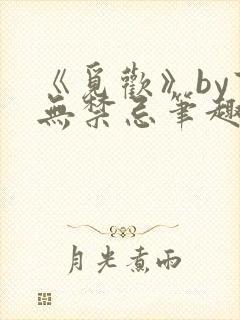 《覓歡》by
無禁忌筆趣
月光煮雨